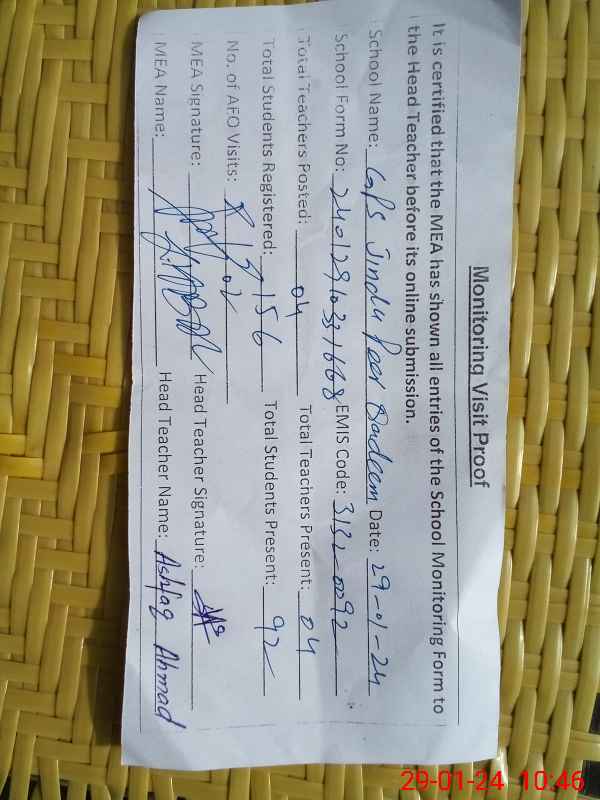 Monitoring Visit Proof
It is certified that the MEA has shown all entries of the School Monitoring Form to
the Head Teacher before its online submission.
School Name: GPS Jindu Peer Qadeem Date: 29-01-24
School Form No: 24012910331668 EMIS Code: 3132-0092
Total Teachers Posted: 04 Total Teachers Present: 04
Total Students Registered: 156 Total Students Present: 92
No. of AEO Visits: 02
MEA Signature: Head Teacher Signature:
MEA Name: Head Teacher Name: Ashfaq Ahmad
29-01-24 10:46